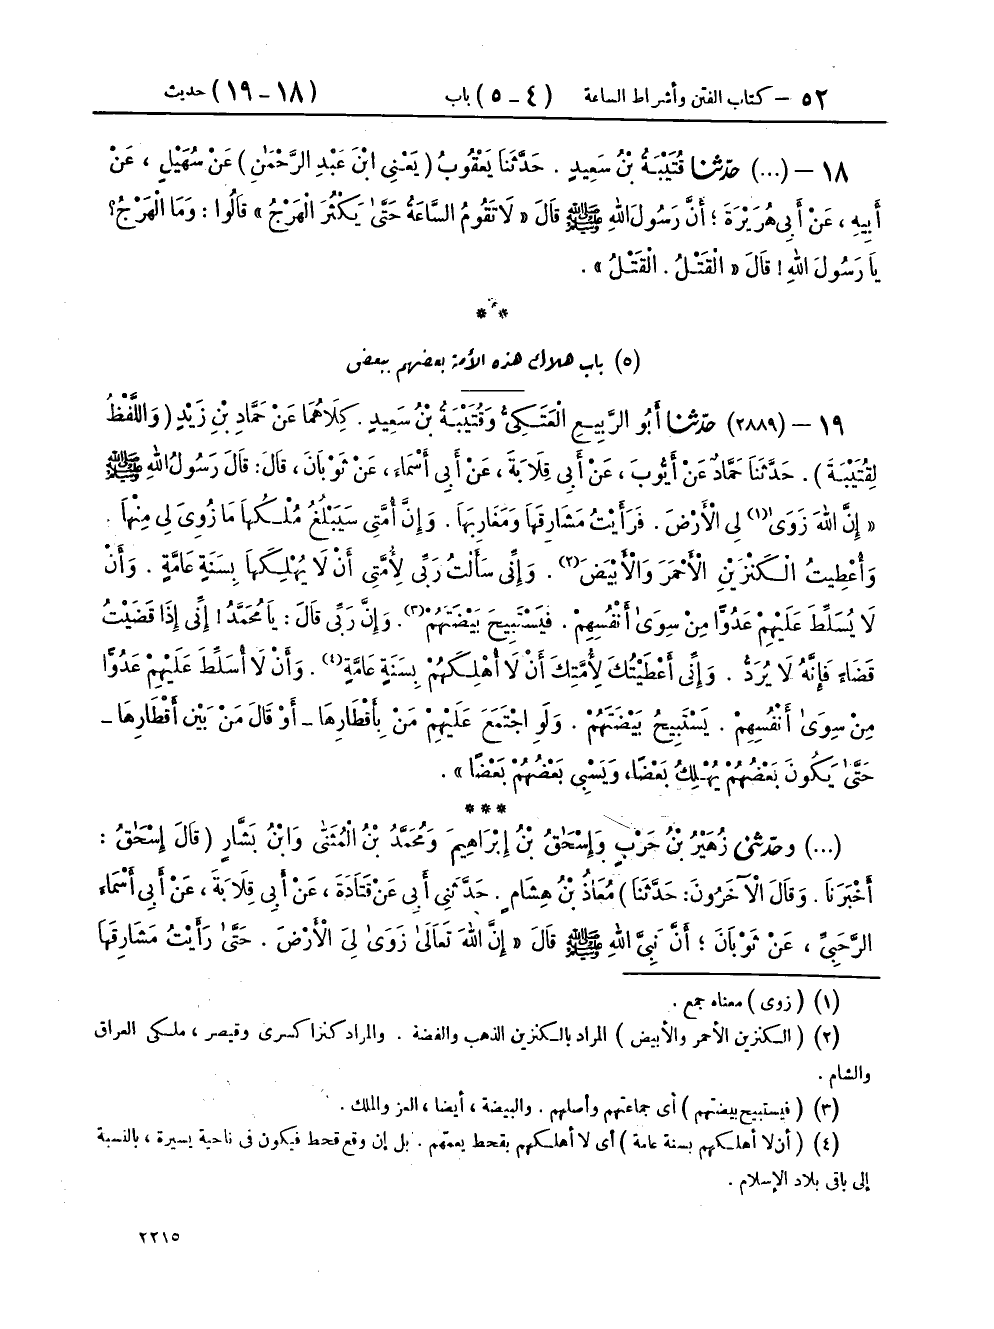 ٥٢ – كتاب الفتن وأشراط الساعة (٤ – ٥) باب (١٨ – ١٩) حديث
١٨ – (...) حَدَّثَنَا قُتَيْبَةُ بْنُ سَعِيدٍ . حَدَّثَنَا يَعْقُوبُ (يَعْنِي ابْنَ عَبْدِ الرَّحْمَٰنِ) عَنْ سُهَيْلٍ ، عَنْ
أَبِيهِ ، عَنْ أَبِي هُرَيْرَةَ ؛ أَنَّ رَسُولَ اللهِ ﷺ قَالَ « لَا تَقُومُ السَّاعَةُ حَتَّىٰ يَكْثُرَ الْهَرْجُ » قَالُوا : وَمَا الْهَرْجُ؟
يَا رَسُولَ اللهِ ! قَالَ « الْقَتْلُ . الْقَتْلُ » .
***
(٥) باب هلاك هذه الأمة بعضهم ببعض
١٩ – (٢٨٨٩) حَدَّثَنَا أَبُو الرَّبِيعِ الْعَتَكِيُّ وَقُتَيْبَةُ بْنُ سَعِيدٍ . كِلَاهُمَا عَنْ حَمَّادِ بْنِ زَيْدٍ (وَاللَّفْظُ
لِقُتَيْبَةَ) . حَدَّثَنَا حَمَّادٌ عَنْ أَيُّوبَ ، عَنْ أَبِي قِلَابَةَ ، عَنْ أَبِي أَسْمَاءَ ، عَنْ ثَوْبَانَ ، قَالَ: قَالَ رَسُولُ اللهِ ﷺ
« إِنَّ اللهَ زَوَىٰ(١) لِيَ الْأَرْضَ . فَرَأَيْتُ مَشَارِقَهَا وَمَغَارِبَهَا . وَإِنَّ أُمَّتِي سَيَبْلُغُ مُلْكُهَا مَا زُوِيَ لِي مِنْهَا .
وَأُعْطِيتُ الْكَنْزَيْنِ الْأَحْمَرَ وَالْأَبْيَضَ(٢) . وَإِنِّي سَأَلْتُ رَبِّي لِأُمَّتِي أَنْ لَا يُهْلِكَهَا بِسَنَةٍ عَامَّةٍ . وَأَنْ
لَا يُسَلِّطَ عَلَيْهِمْ عَدُوًّا مِنْ سِوَىٰ أَنْفُسِهِمْ . فَيَسْتَبِيحَ بَيْضَتَهُمْ(٣) . وَإِنَّ رَبِّي قَالَ : يَا مُحَمَّدُ ! إِنِّي إِذَا قَضَيْتُ
قَضَاءً فَإِنَّهُ لَا يُرَدُّ . وَإِنِّي أَعْطَيْتُكَ لِأُمَّتِكَ أَنْ لَا أُهْلِكَهُمْ بِسَنَةٍ عَامَّةٍ(٤) . وَأَنْ لَا أُسَلِّطَ عَلَيْهِمْ عَدُوًّا
مِنْ سِوَىٰ أَنْفُسِهِمْ . يَسْتَبِيحُ بَيْضَتَهُمْ . وَلَوِ اجْتَمَعَ عَلَيْهِمْ مَنْ بِأَقْطَارِهَا – أَوْ قَالَ مَنْ بَيْنَ أَقْطَارِهَا –
حَتَّىٰ يَكُونَ بَعْضُهُمْ يُهْلِكُ بَعْضًا، وَيَسْبِي بَعْضُهُمْ بَعْضًا » .
***
(...) وحَدَّثَنِي زُهَيْرُ بْنُ حَرْبٍ وَإِسْحَاقُ بْنُ إِبْرَاهِيمَ وَمُحَمَّدُ بْنُ الْمُثَنَّىٰ وَابْنُ بَشَّارٍ (قَالَ إِسْحَٰقُ :
أَخْبَرَنَا . وَقَالَ الْآخَرُونَ: حَدَّثَنَا) مُعَاذُ بْنُ هِشَامٍ . حَدَّثَنِي أَبِي عَنْ قَتَادَةَ ، عَنْ أَبِي قِلَابَةَ ، عَنْ أَبِي أَسْمَاءَ
الرَّحَبِيِّ ، عَنْ ثَوْبَانَ ؛ أَنَّ نَبِيَّ اللهِ ﷺ قَالَ « إِنَّ اللهَ تَعَالَىٰ زَوَىٰ لِيَ الْأَرْضَ . حَتَّىٰ رَأَيْتُ مَشَارِقَهَا
(١) (زوى) معناه جمع .
(٢) (الكنزين الأحمر والأبيض) المراد بالكنزين الذهب والفضة . والمراد كنزا كسرى وقيصر ، ملكي العراق
والشام .
(٣) (فيستبيح بيضتهم) أى جماعتهم وأصلهم . والبيضة ، أيضا ، العز والملك .
(٤) (أن لا أهلكهم بسنة عامة) أى لا أهلكهم بقحط يعمهم . بل إن وقع قحط فيكون فى ناحية يسيرة ، بالنسبة
إلى باقى بلاد الإسلام .
٢٢١٥